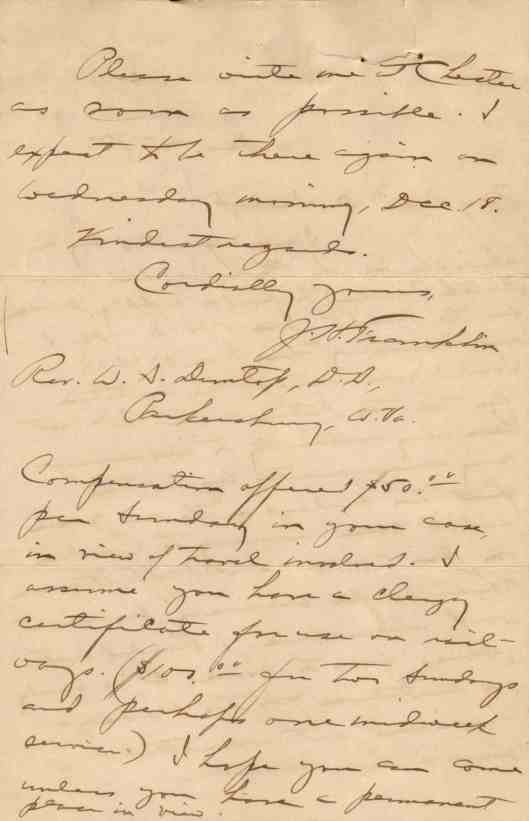 Please write me to Chester
as soon as possible. I
expect to be there again on
Wednesday morning, Dec. 18.
Kindest regards.
Cordially yours,
J. H. Franklin
Rev. W. S. Dunlop, D.D.,
Parkersburg, W. Va.
Compensation offered $50.00
per Sunday in your case,
in view of travel involved. I
assume you have a clergy
certificate for use on rail-
ways. ($100.00 for two Sundays
and perhaps one midweek
service.) I hope you can come
unless you have a permanent
place in view.